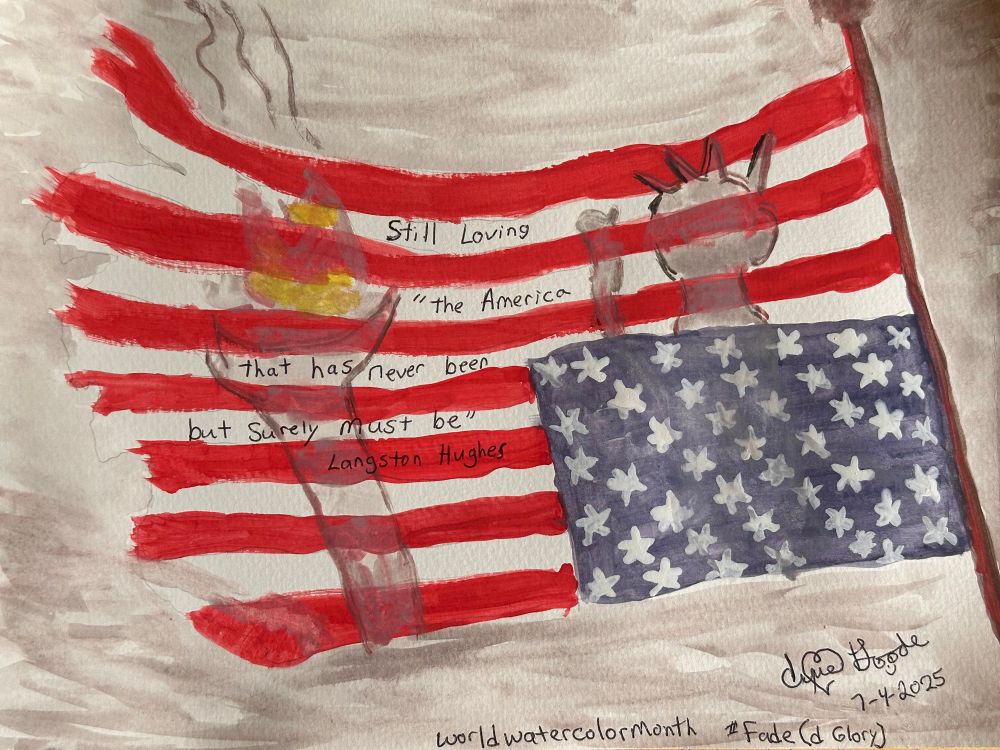 Still Loving
"the America
that has never been
but surely must be"
Langston Hughes
Goode
7-4-2025
worldwatercolorMonth #Fade(d Glory)